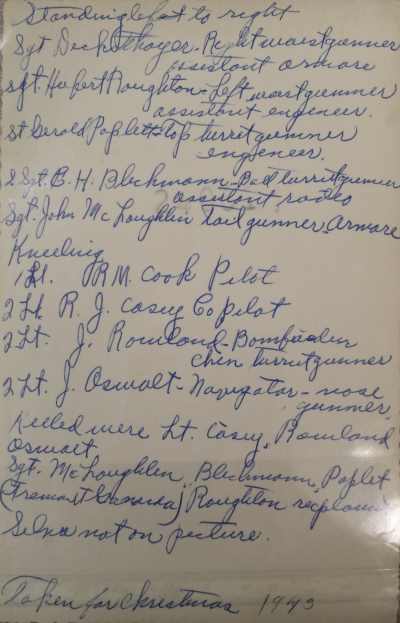 Standing left to right
Sgt Thayer - Right waist gunner
assistant armore
Sgt. Hubert Roughton - Left waist gunner
assistant engeneer.
St Gerold Poplett - Top turrit gunner
engeneer.
S Sgt. B. H. Blechmann - Ball turrit gunner
assistant radio
Sgt. John McLoughlin Tail gunner - Armore
Kneeling
1 Lt. R M. Cook Pilot
2 Lt R. J. Casey CoPilot
2 Lt. J. Rowland - Bombadier
Chin turrit gunner
2 Lt. J. Oswalt - Navigator - nose
gunner.
Killed were Lt. Casey, Rowland
Oswalt.
Sgt. McLoughlin, Blechmann, Poplet
Roughton
not on picture.
Taken for Christmas 1943